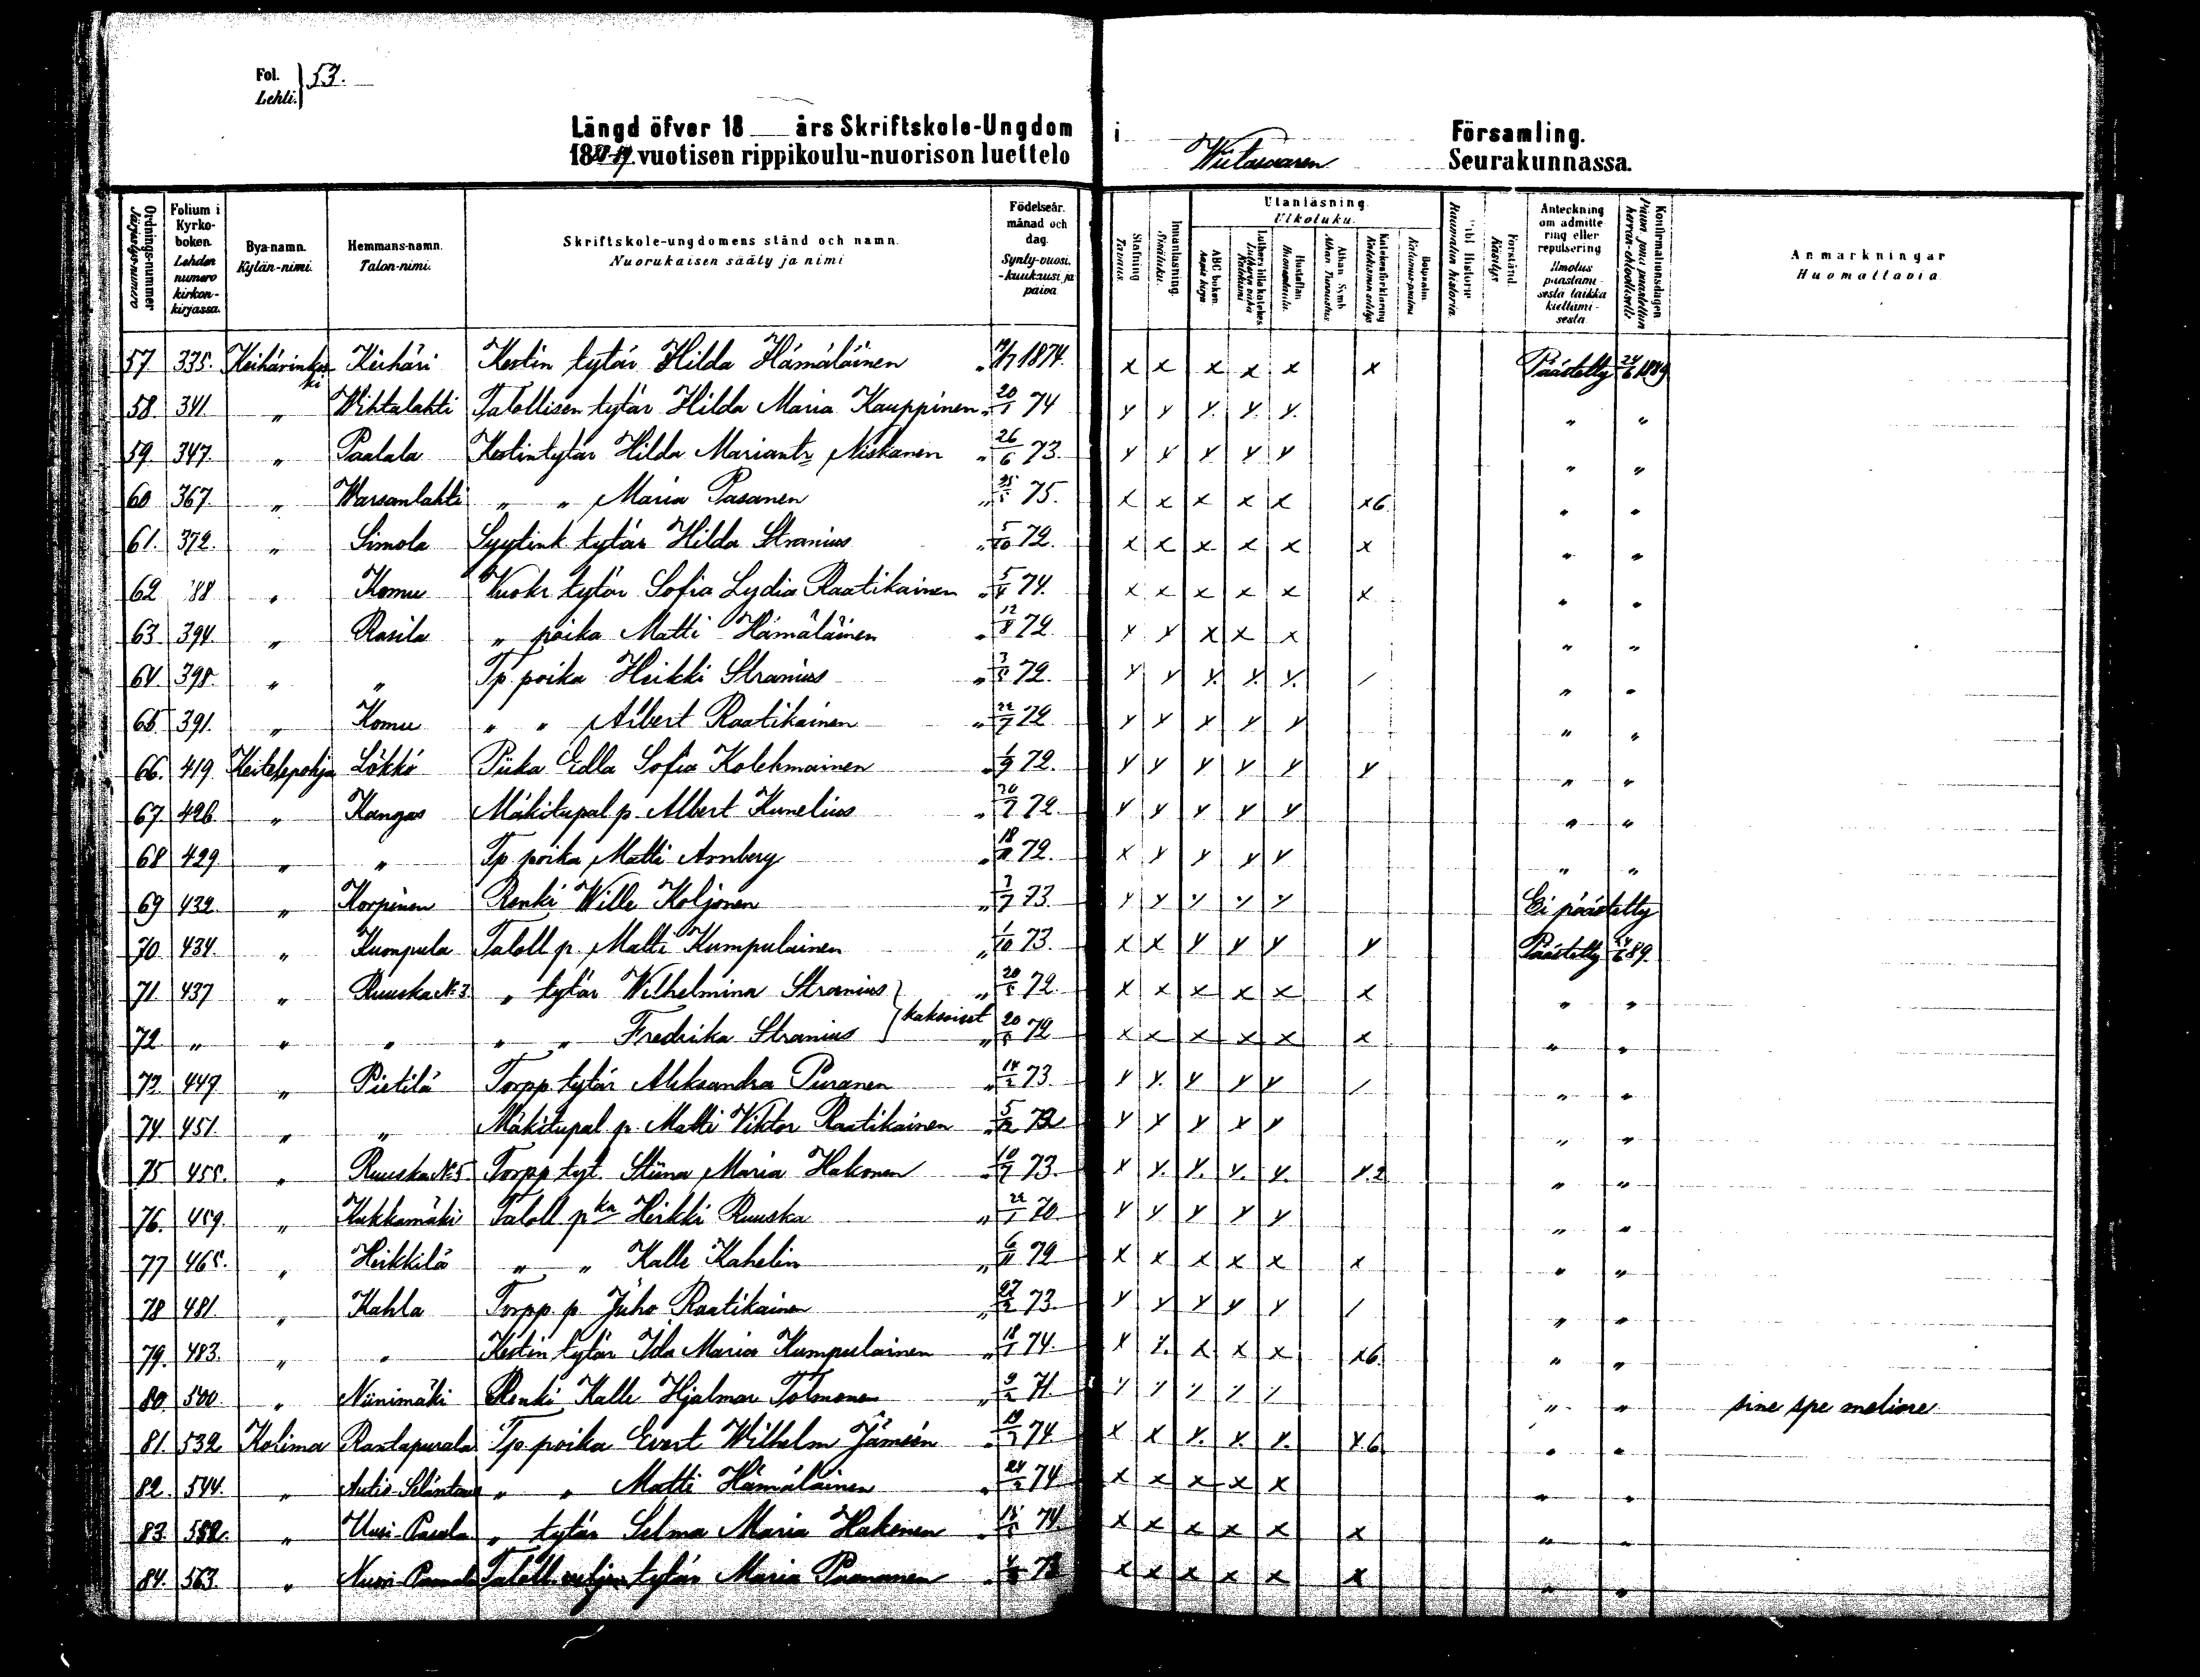 Fol. 53.
Lehti.
Längd öfver 18 års Skriftskole-Ungdom i Församling.
18 vuotisen rippikoulu-nuorison luettelo Wiitasaaren Seurakunnassa.
Ordnings-nummer Järjestys-numero
Folium i Kyrko-boken. Lehden numero kirkon-kirjassa.
Bya-namn. Kylän-nimi.
Hemmans-namn. Talon-nimi.
Skriftskole-ungdomens stånd och namn. Nuorukaisen sääty ja nimi
Födelseår. månad och dag. Synty-vuosi. -kuukausi ja päivä
Stafning Tavaus
Innanläsning. Sisäluku.
Utanläsning. Ulkoluku.
ABC boken. Aapis kirja
Luthers lilla katekes Lutherin vähä Katekismi
Hustaflan Huoneentaulu.
Athan Symb Athan Tunnustus
Katekesförklaring Katekismin selitys
Botpsalm. Katumus-psalmi
Bibl Historie Raamatun historia.
Förstånd. Käsitys
Anteckning om admitte ring eller repulsering Ilmotus päästämi-sestä taikka kieltämi-sestä.
Konfirmationsdagen Päivä jona päästettiin herran-ehtoolliselle
Anmärkningar Huomattavia
57. 335. Keihärinkoski Keihäri Kestin tytär Hilda Hämäläinen " 19/7 1874. x x x x x x Päästetty 24/6 1889
58. 341 " Wihtalahti Talollisen tytär Hilda Maria Kauppinen " 20/1 74 y y y. y. y. " "
59. 347. " Paalala Kestin tytär Hilda Mariantr Niskanen " 26/6 73. y y y y y " "
60 367. " Warsanlahti " " Maria Pasanen " 25/5 75. x x x x x x6. " "
61. 372. " Simola Syytink tytär Hilda Stranius " 5/10 72. x x x x x x " "
62 88 " Komu Vuokr tytär Sofia Lydia Raatikainen " 5/4 74. x x x x x x " "
63. 394. " Rasila " poika Matti Hämäläinen " 12/8 72. y y x x x " "
64. 398. " " Tp. poika Heikki Stranius " 3/5 72. y y y. y. y. / " "
65. 391. " Komu " " Albert Raatikainen " 22/7 72 y y y y y " "
66. 419 Keitelepohja Lökkö Piika Edla Sofia Kolehmainen " 1/9 72. y y y y y y " "
67. 426. " Kangas Mäkitupal p. Albert Kunelius " 20/7 72. y y y y y " "
68 429 " " Tp poika Matti Arnberg " 18/11 72. x y y y y " "
69 432. " Korpinen Renki Wille Koljonen " 7/7 73. y y y y y Ei päästetty
70. 434. " Kumpula Taloll p. Matti Kumpulainen " 1/10 73. x x y y y y Päästetty 24/6 89.
71. 437 " Ruuska No. 3. " tytär Wilhelmina Stranius } kaksoiset " 20/5 72. x x x x x x " "
72 " " " " " Fredrika Stranius " 20/5 72 x x x x x x " "
73. 447 " Pietilä Torpp. tytär Aleksandra Puranen " 14/2 73. y y. y y y / " "
74. 451. " " Mäkitupal p. Matti Viktor Raatikainen " 5/12 72 y y y x y " "
75 455. " Ruuska No. 5. Torpp tyt. Stiina Maria Hakonen " 10/7 73. x y. y. y. y. y.2 " "
76. 459. " Kukkamäki Taloll pka Heikki Ruuska " 22/1 70 y y y y y " "
77 465. " Heikkilä " " Kalle Kahelin " 6/11 72 x x x x x x " "
78 481. " Kahla Torpp p. Juho Raatikainen " 27/2 73. y y y y y / " "
79. 483. " " Kestin tytär Ida Maria Kumpulainen " 18/1 74. x y. x x x x6. " "
80. 500 " Niinimäki Renki Kalle Hjalmar Tolmonen " 9/2 71. y y y y y " " sine spe meliore
81. 532 Kolima Rantapurala Tp poika Evert Wilhelm Jämsén " 19/7 74. x x y. y. y. y.6 " "
82. 544. " Autio-Seläntaus " " Matti Hämäläinen " 24/2 74 x x x x x " "
83. 552. " Uusi-Pasala " tytär Selma Maria Hakonen " 15/5 74. x x x x x x " "
84. 563. " Taloll. veljen tytär Maria Paananen " 73 x x x x x x " "